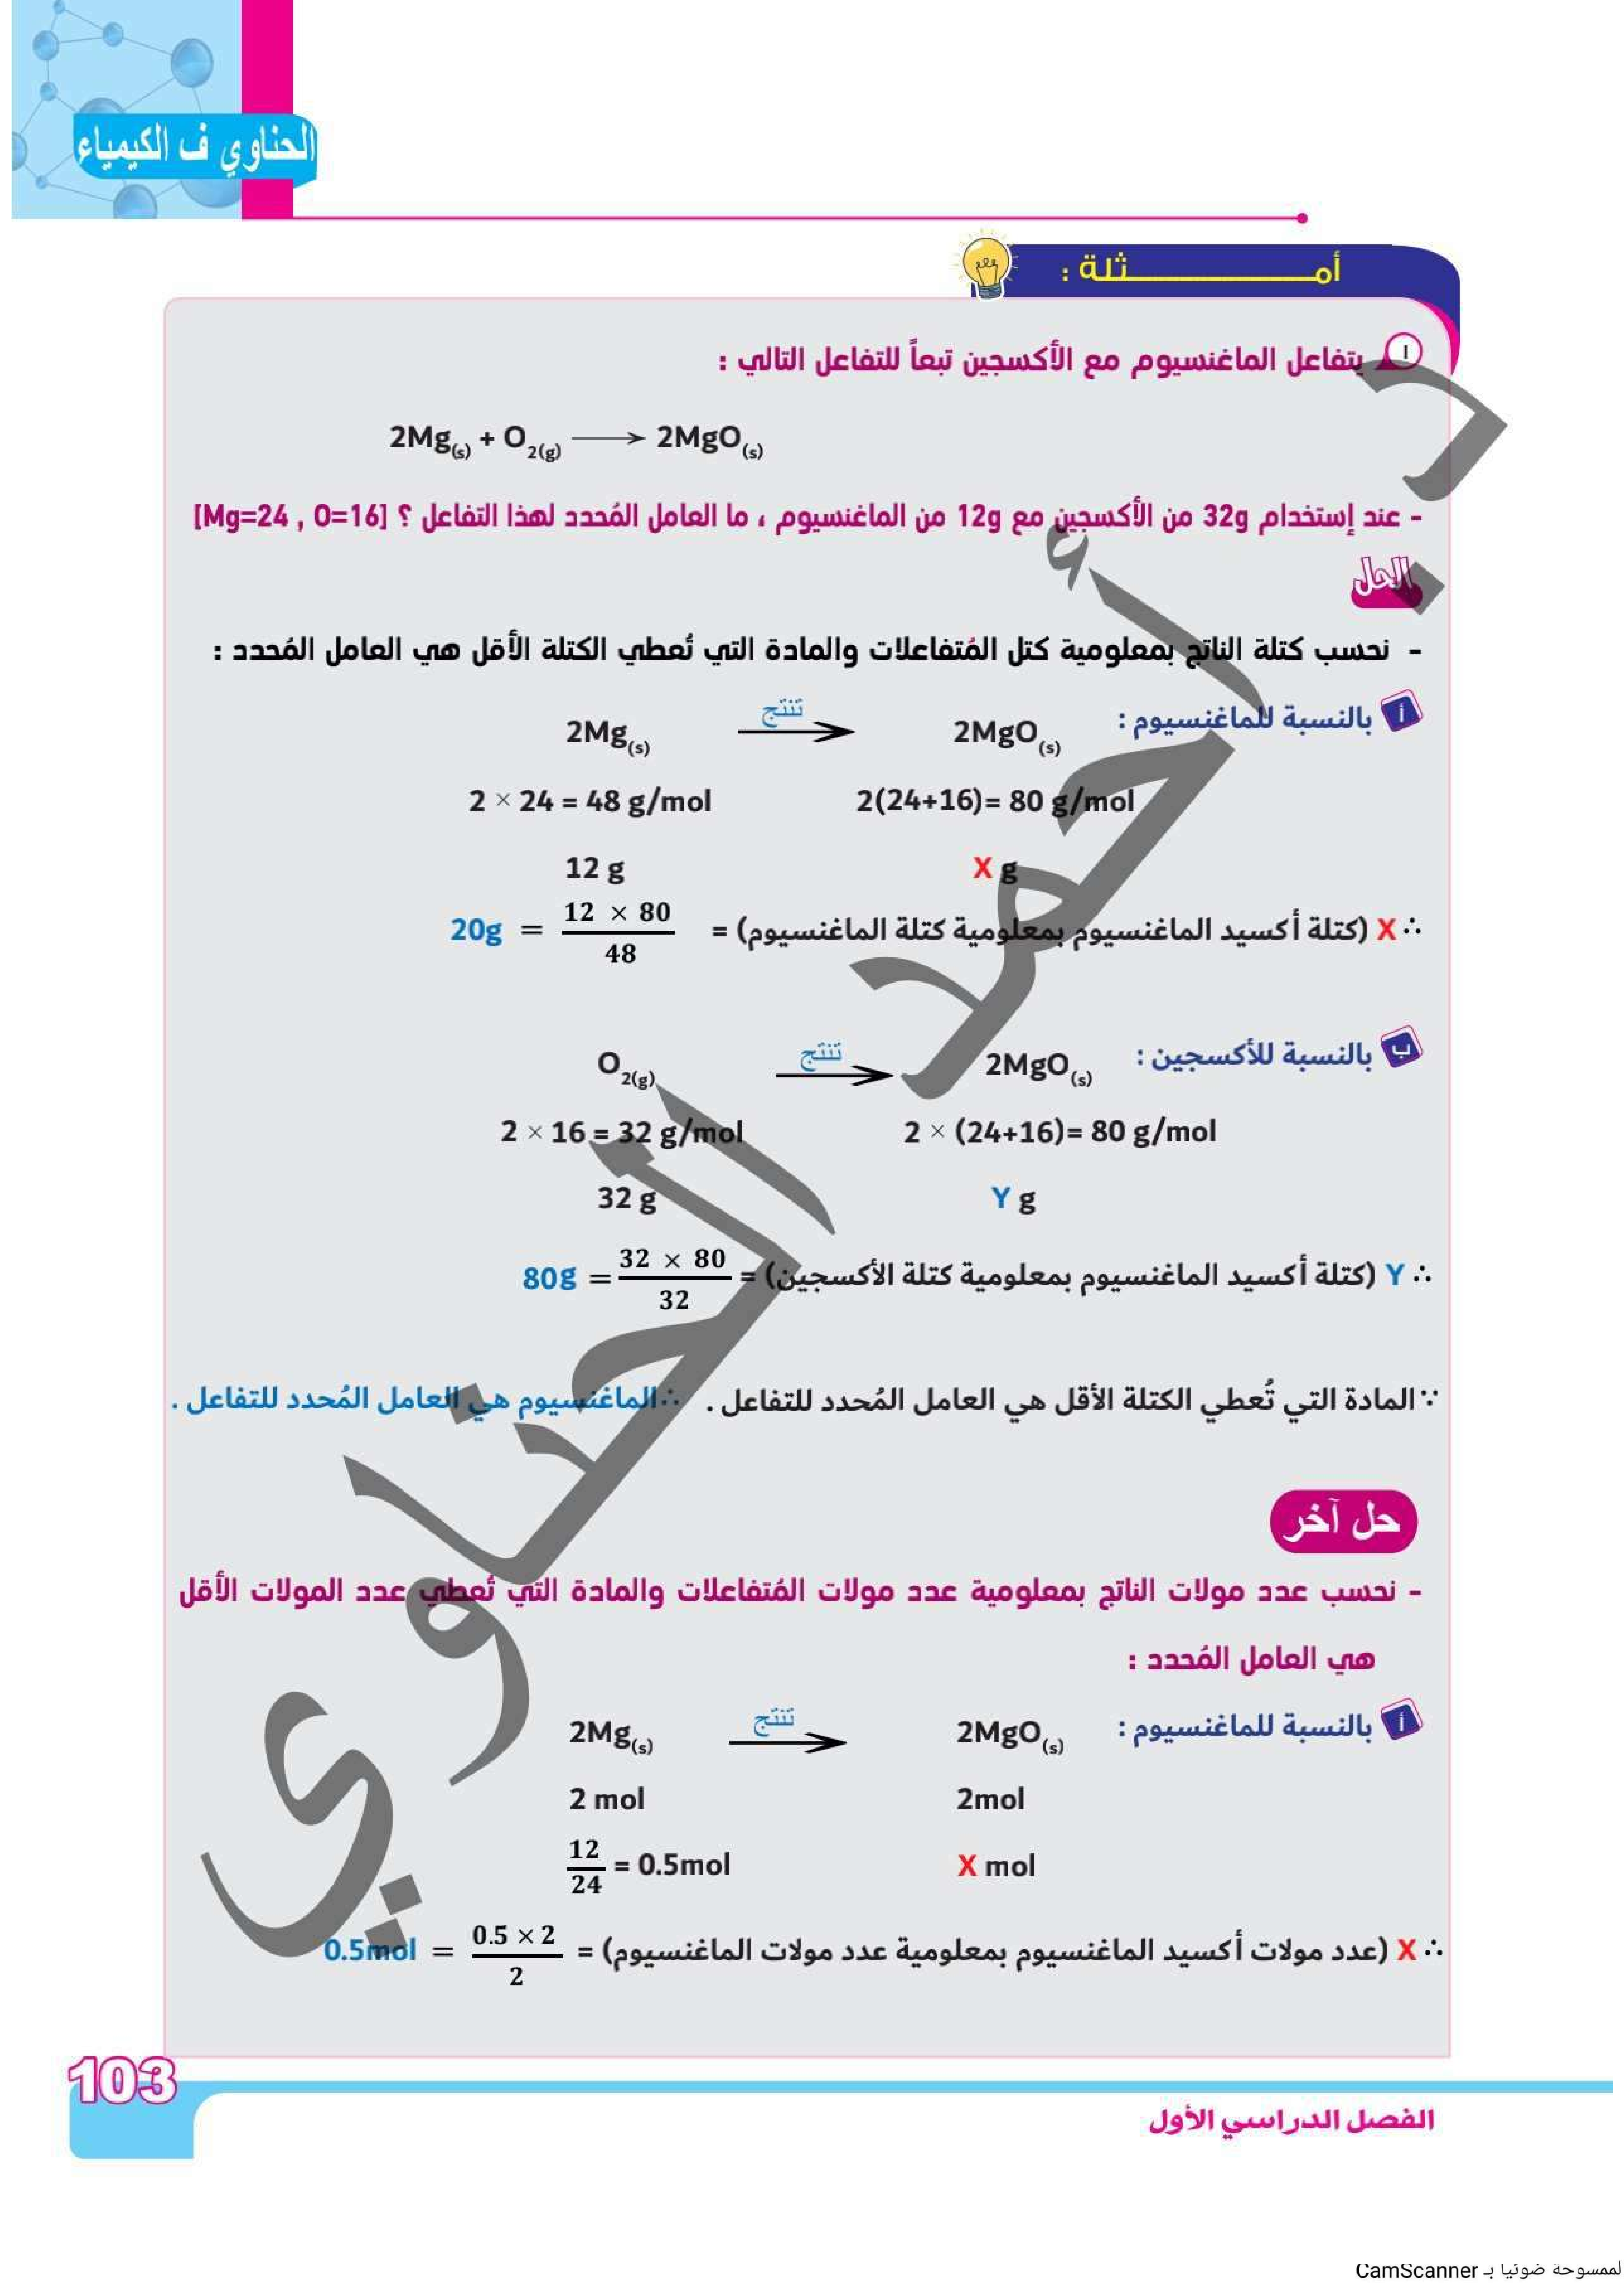 الحناوي ف الكيمياء
أمـــــــــثلة :
١ يتفاعل الماغنسيوم مع الأكسجين تبعاً للتفاعل التالي :
2Mg(s) + O2(g) ⟶ 2MgO(s)
- عند إستخدام 32g من الأكسجين مع 12g من الماغنسيوم ، ما العامل المُحدد لهذا التفاعل ؟ [Mg=24 , O=16]
الحل
- نحسب كتلة الناتج بمعلومية كتل المُتفاعلات والمادة التي تُعطي الكتلة الأقل هي العامل المُحدد :
أ بالنسبة للماغنسيوم :
2Mg(s) تنتج ⟶ 2MgO(s)
2 × 24 = 48 g/mol 2(24+16)= 80 g/mol
12 g X g
∴ X (كتلة أكسيد الماغنسيوم بمعلومية كتلة الماغنسيوم) = 12 × 80 / 48 = 20g
ب بالنسبة للأكسجين :
O2(g) تنتج ⟶ 2MgO(s)
2 × 16 = 32 g/mol 2 × (24+16)= 80 g/mol
32 g Y g
∴ Y (كتلة أكسيد الماغنسيوم بمعلومية كتلة الأكسجين) = 32 × 80 / 32 = 80g
∵ المادة التي تُعطي الكتلة الأقل هي العامل المُحدد للتفاعل . ∴ الماغنسيوم هي العامل المُحدد للتفاعل .
حل آخر
- نحسب عدد مولات الناتج بمعلومية عدد مولات المُتفاعلات والمادة التي تُعطي عدد المولات الأقل
هي العامل المُحدد :
أ بالنسبة للماغنسيوم :
2Mg(s) تنتج ⟶ 2MgO(s)
2 mol 2mol
12/24 = 0.5mol X mol
∴ X (عدد مولات أكسيد الماغنسيوم بمعلومية عدد مولات الماغنسيوم) = 0.5 × 2 / 2 = 0.5mol
د. أحمد الحناوي
103
الفصل الدراسي الأول
لممسوحة ضوئيا بـ CamScanner